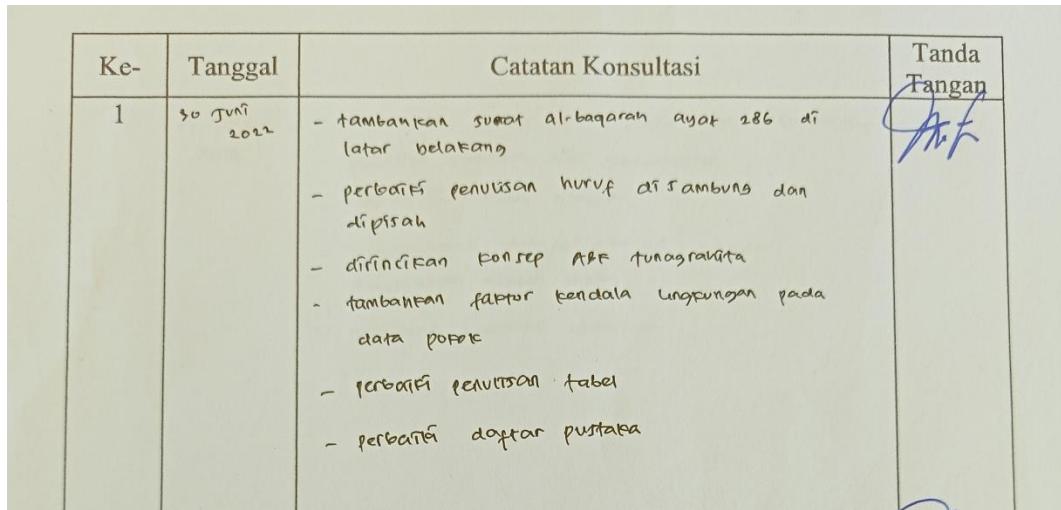 Ke- Tanggal Catatan Konsultasi Tanda Tangan
1 30 Juni 2022
- tambahkan surat al-baqarah ayat 286 di
latar belakang
- perbaiki penulisan huruf di sambung dan
dipisah
- dirincikan konsep ABK tunagrahita
- tambahkan faktor kendala lingkungan pada
data pokok
- perbaiki penulisan tabel
- perbaiki daftar pustaka